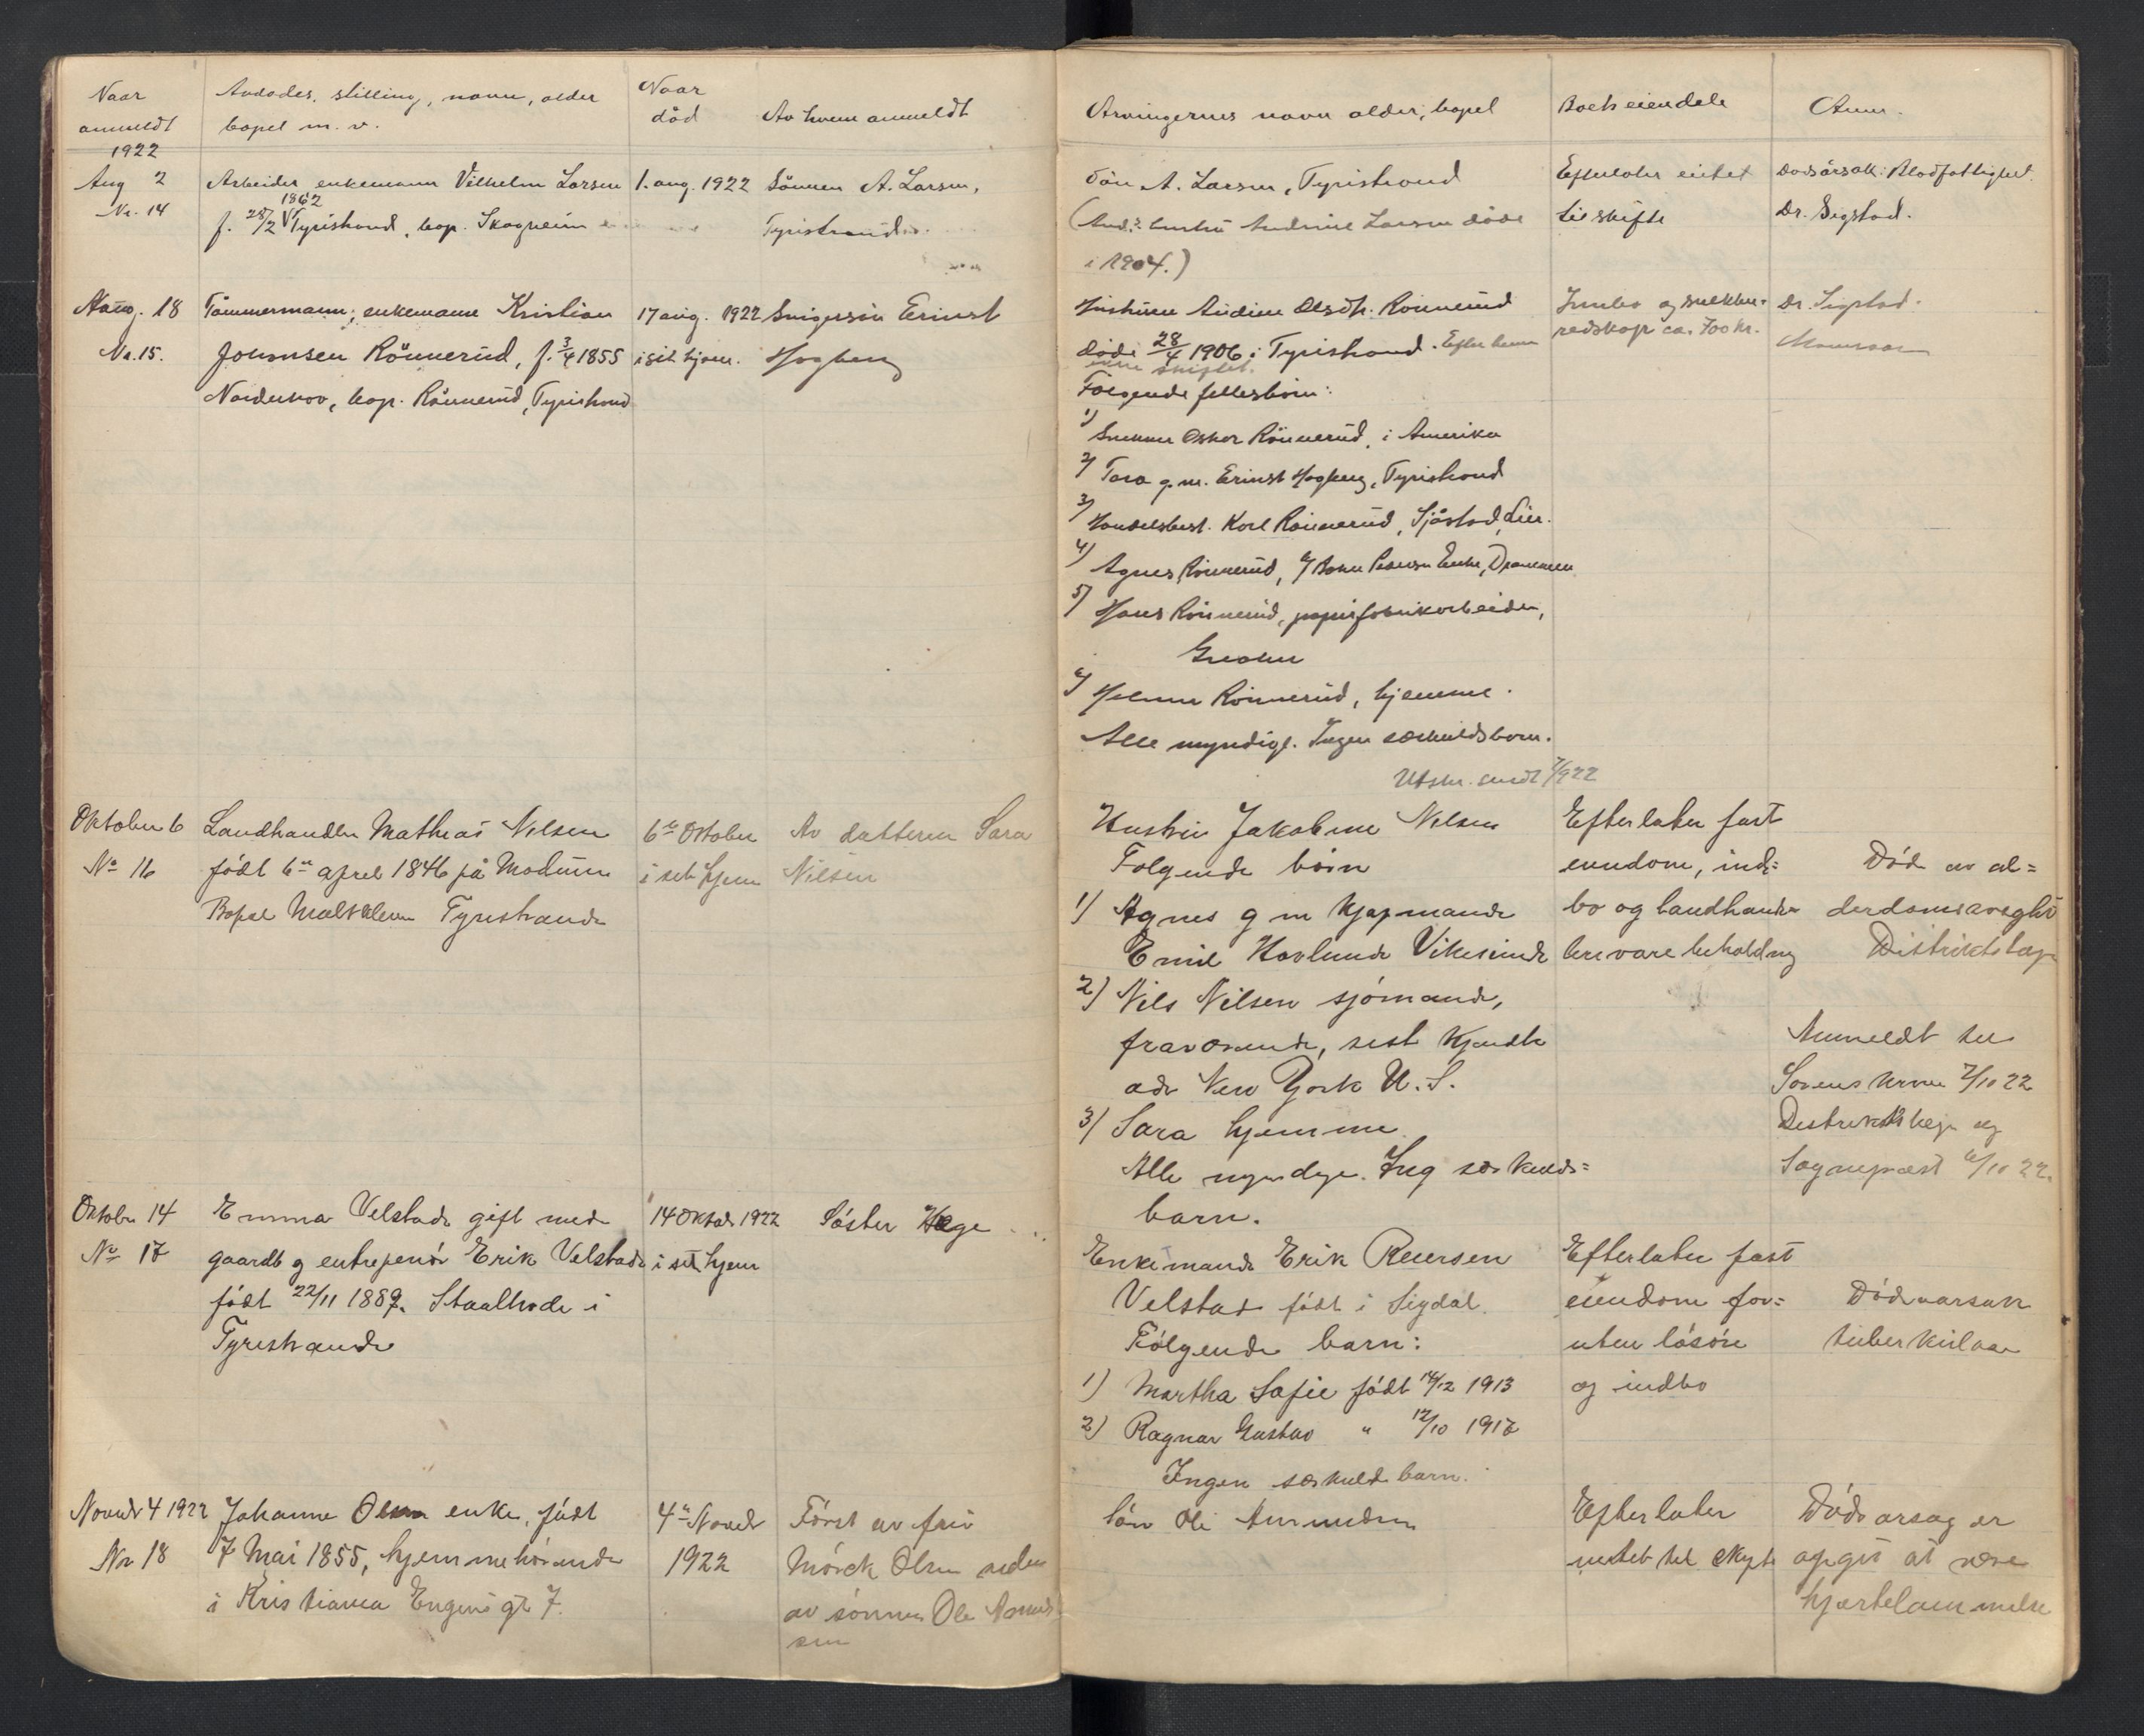 Naar
anmeldt
1922
Avdødes, stilling, navn, alder
bopel m. v.
Naar
død
Av hvem anmeldt
Aug 2
Nr. 14
Arbeider, enkemann Vilhelm Larsen
1862
f. 28/2 Tyristrand, bop. Skogheim
1. aug. 1922
Sönnen A. Larsen,
Tyristrand
Aug. 18
Nr. 15.
Tömmermann, enkemann Kristian
Johansen Rönnerud, f. 3/4 1855
Norderhov, bop. Rönnerud, Tyristrand
17 aug. 1922
i sit hjem.
Svigersön Ernst
Hogberg
Oktober 6
No 16
Landhandler Mathias Nilsen
født 6te april 1846 på Modum
Bopæl Tyristrand
6te Oktober
i sit hjem
Av datteren Sara
Nilsen
Oktober 14
No 17
Emma Velstad gift med
gaardb og entrepenør Erik Velstad
født 22/11 1889. Staalhode i
Tyristrand
14 Oktob 1922
i sit hjem
Søster Hæge
Novembr 4 1922
Nr 18
Johanne Olsen enke, født
7 Mai 1855, hjemmehørende
i Kristiania Engens gt 7.
4de Novbr
1922
Først av fru
Mörck Olsen siden
av sønnen Ole Amund
sen
Arvingernes navn alder, bopel
Boets eiendele
Anm.
Sön A. Larsen, Tyristrand
(Avd.s hustru Andrine Larsen döde
i 1904.)
Efterlater intet
til skifte
Dödsårsak: Blodfattighet.
Dr. Sigstad.
Hustruen Andine Olsdtr. Rönnerud
döde 28/4 1906 i Tyristrand. Efter henne
ikke skiftet.
Følgende fellesbörn:
1) Snekker Oskar Rönnerud, i Amerika
2) Tora g.m. Ernst Hogberg, Tyristrand
3) Handelsbest. Karl Rönnerud, Sjåstad, Lier.
4) Agnes Rönnerud, Pedersen Enke, Drammen
5) Hans Rönnerud, papirfabrikarbeider,
6) Rönnerud, hjemme.
Alle myndige. Ingen særkuldsbarn.
Utskr. sendt 7/9 22
Innbo og snekker-
redskap ca. 700 kr.
Dr. Sigstad.
Hustru Jakobine Nilsen
Følgende børn
1) Agnes g m kjøpmand
Emil Hovlund Vikersund
2) Nils Nilsen sjömand,
fraværende, sist kjendte
adr New York U.S.
3) Sara hjemme
Alle myndige. Ing særkulds=
barn.
Efterlater fast
eiendom, ind=
bo og landhand=
lervarebeholdning
Död av al=
derdomsavsghet
Distriktslæge
Anmeldt til
Sorenskriver 7/10 22
Distriktslæge og
Sogneprest 6/10 22.
Enkemand Erik Reiersen
Velstad født i Sigdal.
Følgende barn:
1) Martha Sofie født 14/12 1913
2) Ragnar Gustav " 12/10 1917
Ingen særkuldsbarn.
Efterlater fast
eiendom for=
uten løsøre
og indbo
Dödsaarsak
tuberkulose
Sön Ole Amundsen
Efterlater
intet til skifte
Dödsarsag er
opgit at være
hjertelammelse